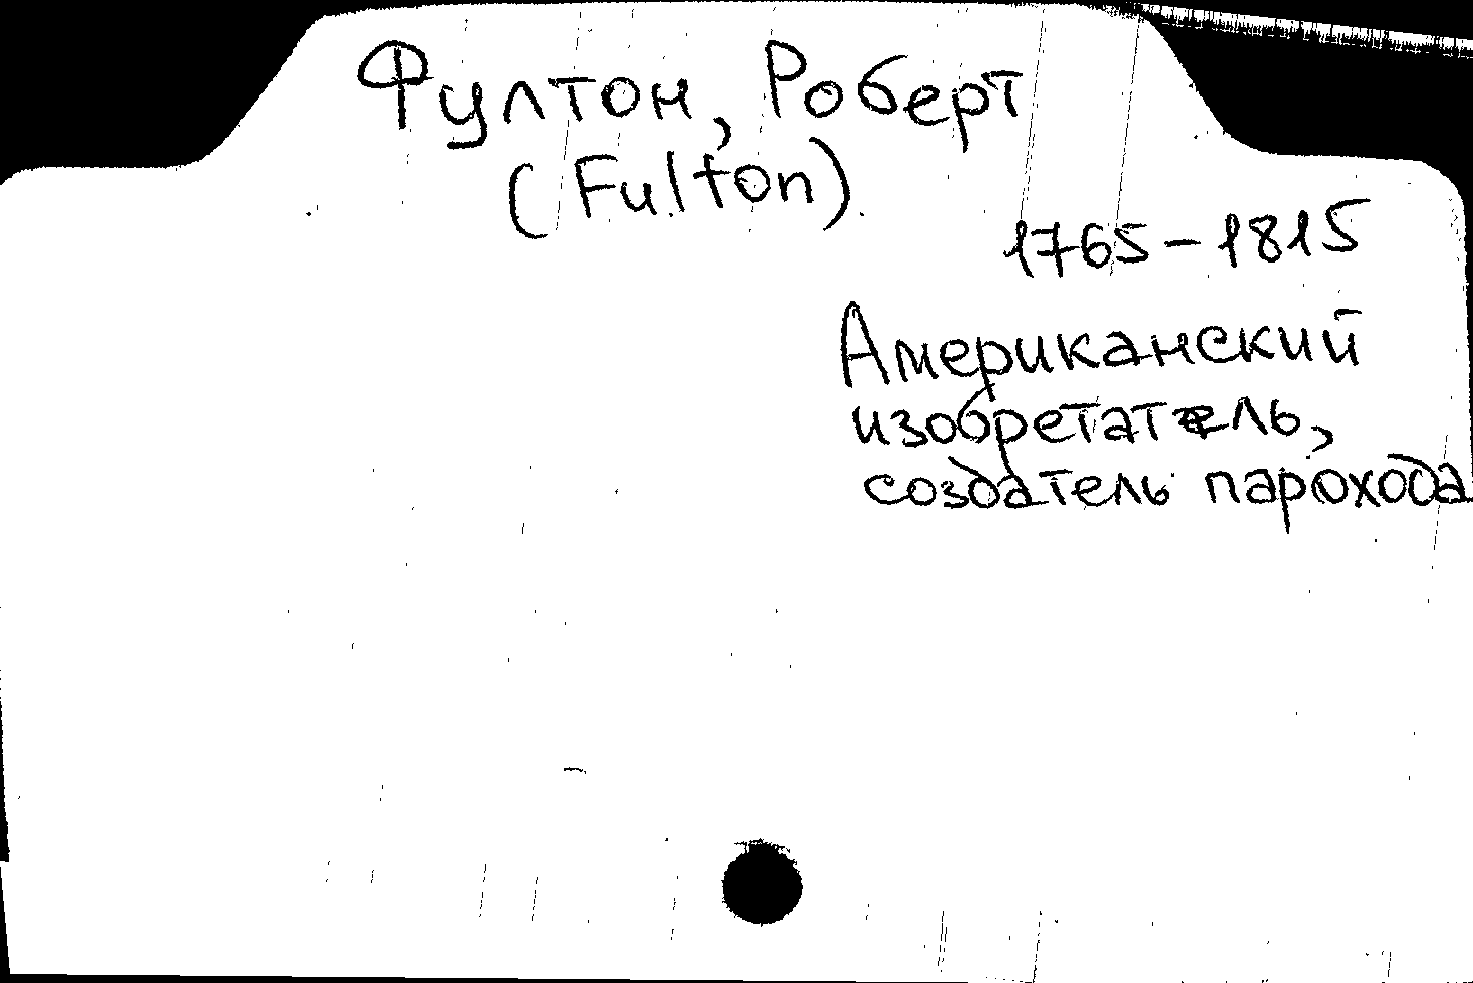 Фултон, Роберт
(Fulton)
1765-1815
Американский
изобретатель,
создатель парохода